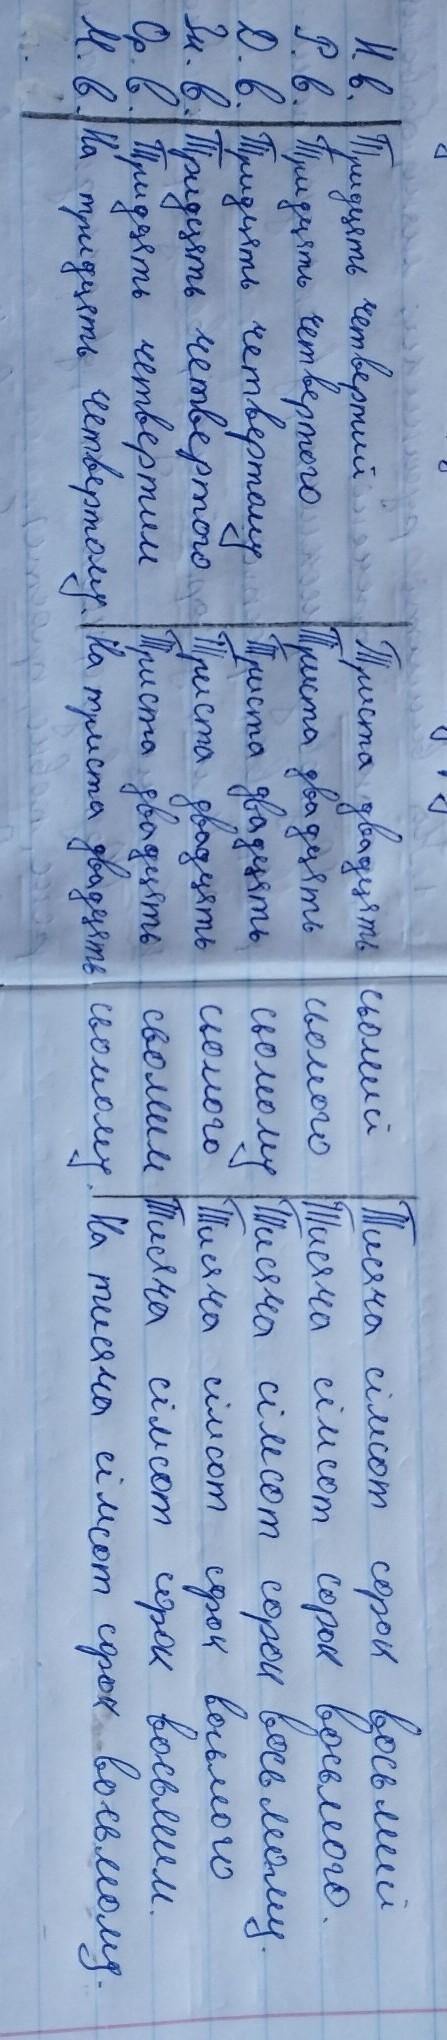 Н. в. Тридцять четвертий Триста двадцять сьомий Тисяча сімсот сорок восьмий
Р. в. Тридцять четвертого Триста двадцять сьомого Тисяча сімсот сорок восьмого.
Д. в. Тридцять четвертому Триста двадцять сьомому Тисяча сімсот сорок восьмому.
Зн. в. Тридцять четвертого Триста двадцять сьомого Тисяча сімсот сорок восьмого
Ор. в. Тридцять четвертим Триста двадцять сьомим Тисяча сімсот сорок восьмим.
М. в. На тридцять четвертому. На триста двадцять сьомому. На тисяча сімсот сорок восьмому.